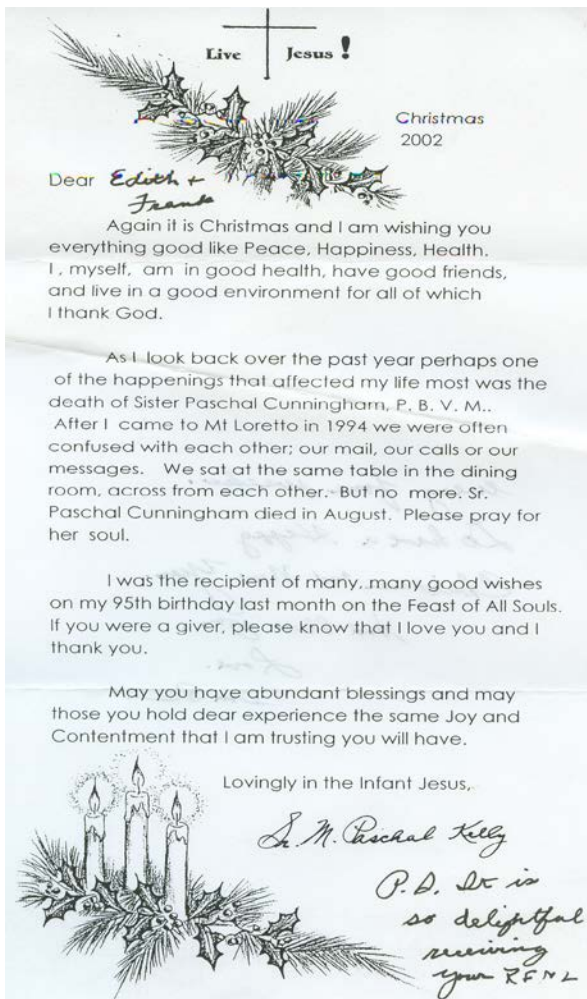 Live Jesus!
Christmas
2002
Dear Edith +
Frank
Again it is Christmas and I am wishing you
everything good like Peace, Happiness, Health.
I, myself, am in good health, have good friends,
and live in a good environment for all of which
I thank God.
As I look back over the past year perhaps one
of the happenings that affected my life most was the
death of Sister Paschal Cunningham, P. B. V. M..
After I came to Mt Loretto in 1994 we were often
confused with each other; our mail, our calls or our
messages. We sat at the same table in the dining
room, across from each other. But no more. Sr.
Paschal Cunningham died in August. Please pray for
her soul.
I was the recipient of many, many good wishes
on my 95th birthday last month on the Feast of All Souls.
If you were a giver, please know that I love you and I
thank you.
May you have abundant blessings and may
those you hold dear experience the same Joy and
Contentment that I am trusting you will have.
Lovingly in the Infant Jesus,
Sr. M. Paschal Kelly
P.S. It is
so delightful
receiving
your RFNL